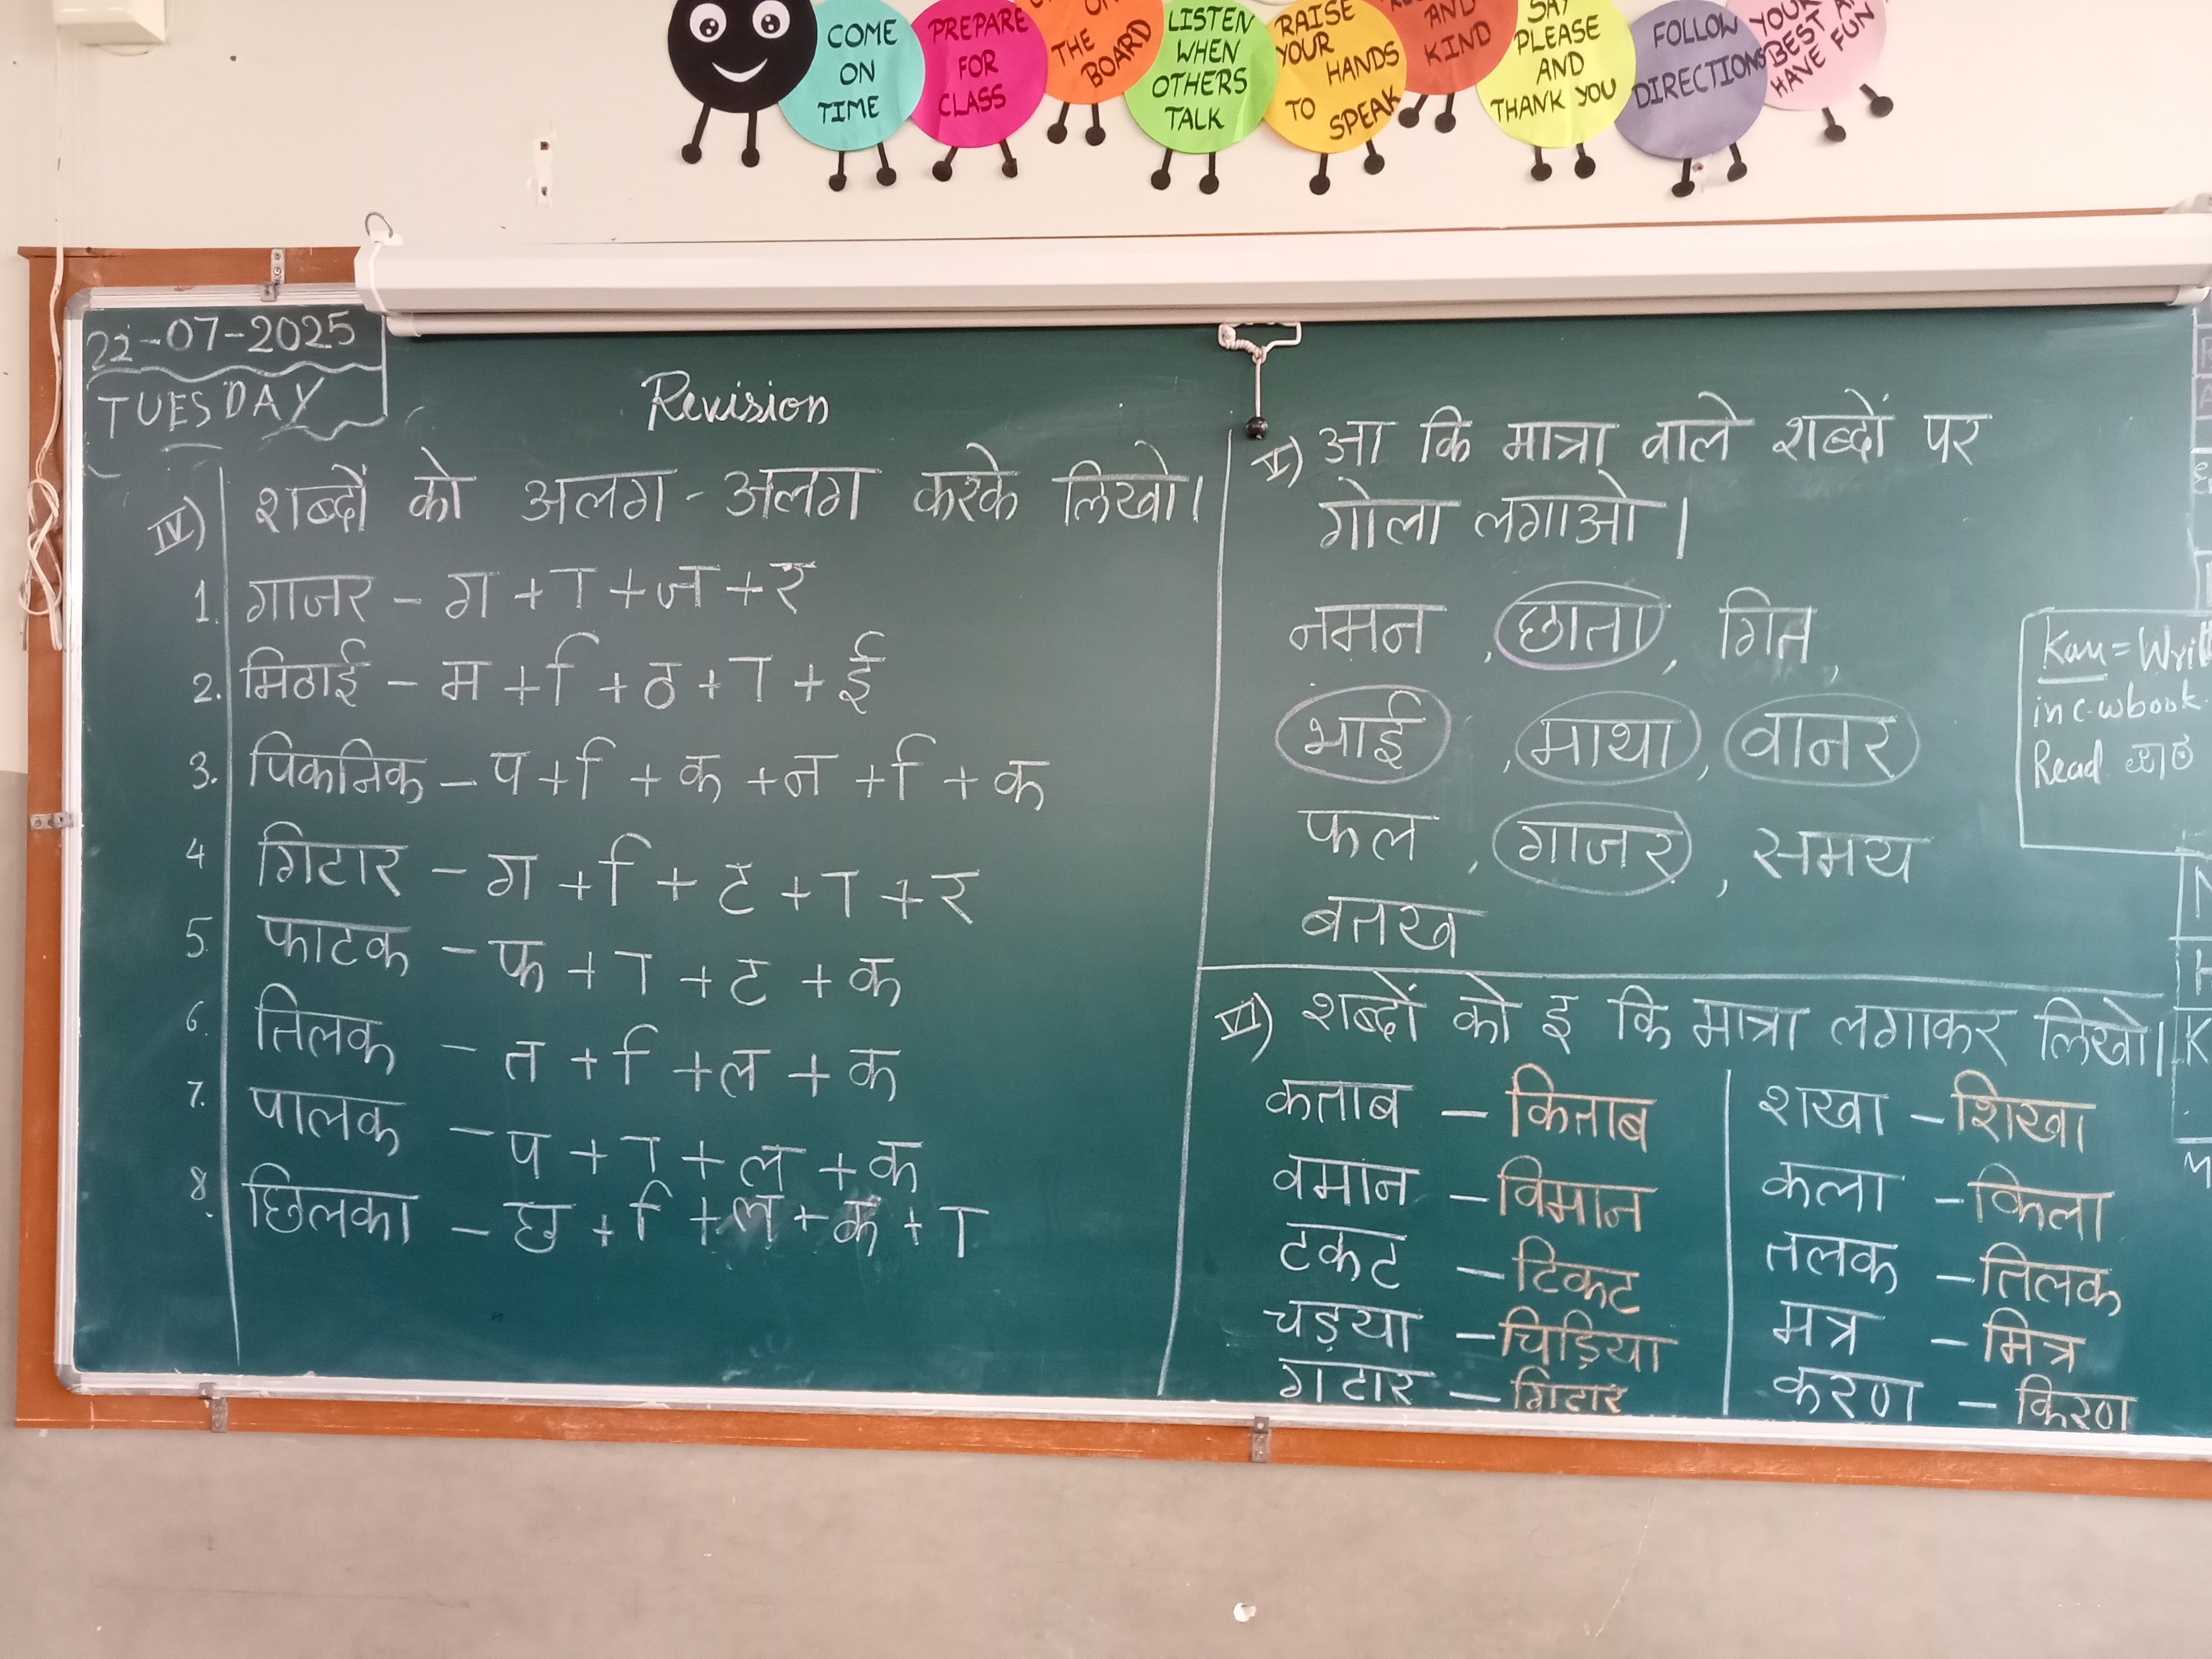 COME
ON
TIME
PREPARE
FOR
CLASS
THE
BOARD
LISTEN
WHEN
OTHERS
TALK
RAISE
YOUR
HANDS
TO SPEAK
AND
KIND
SAY
PLEASE
AND
THANK YOU
FOLLOW
DIRECTIONS
YOUR
BEST
HAVE FUN
22-07-2025
TUESDAY
Revision
IV) शब्दों को अलग - अलग करके लिखो।
1. गाजर – ग + ा + ज + र
2. मिठाई – म + ि + ठ + ा + ई
3. पिकनिक – प + ि + क + न + ि + क
4 गिटार – ग + ि + ट + ा + र
5. फाटक – फ + ा + ट + क
6. तिलक – त + ि + ल + क
7. पालक – प + ा + ल + क
8. छिलका – छ + ि + ल + क + ा
V) आ कि मात्रा वाले शब्दों पर
गोला लगाओ।
नमन , छाता , गित ,
भाई , माथा , वानर
फल , गाजर , समय
बतख
VI) शब्दों को इ कि मात्रा लगाकर लिखो।
कताब – किताब
वमान – विमान
टकट – टिकट
चड़या – चिड़िया
गटार – गिटार
शखा – शिखा
कला – किला
तलक – तिलक
मत्र – मित्र
करण – किरण
in c-wbook
Read